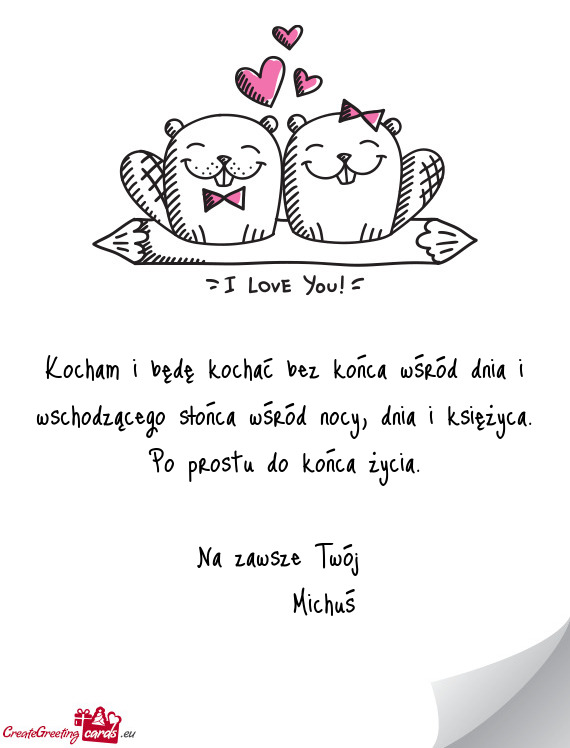 I Love You!
Kocham i będę kochać bez końca wśród dnia i
wschodzącego słońca wśród nocy, dnia i księżyca.
Po prostu do końca życia.
Na zawsze Twój
Michuś
CreateGreeting cards .eu